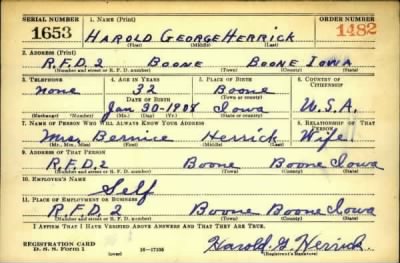 SERIAL NUMBER 1. NAME (Print) ORDER NUMBER
1653 HAROLD GEORGE HERRICK 1482
(First) (Middle) (Last)
2. ADDRESS (Print)
R.F.D. 2 BOONE BOONE IOWA
(Number and street or R. F. D. number) (Town) (County) (State)
3. TELEPHONE 4. AGE IN YEARS 5. PLACE OF BIRTH 6. COUNTRY OF CITIZENSHIP
none 32 Boone
DATE OF BIRTH (Town or county)
Jan 30-1908 Iowa U.S.A.
(Exchange) (Number) (Mo.) (Day) (Yr.) (State or country)
7. NAME OF PERSON WHO WILL ALWAYS KNOW YOUR ADDRESS 8. RELATIONSHIP OF THAT PERSON
Mrs Bernice Herrick Wife
(Mr., Mrs., Miss) (First) (Middle) (Last)
9. ADDRESS OF THAT PERSON
R.F.D. 2 Boone Boone Iowa
(Number and street or R. F. D. number) (Town) (County) (State)
10. EMPLOYER'S NAME
Self
11. PLACE OF EMPLOYMENT OR BUSINESS
R.F.D. 2 Boone Boone Iowa
(Number and street or R. F. D. number) (Town) (County) (State)
I AFFIRM THAT I HAVE VERIFIED ABOVE ANSWERS AND THAT THEY ARE TRUE.
REGISTRATION CARD
D. S. S. Form 1 (over) 16-17105 Harold G Herrick
(Registrant's Signature)